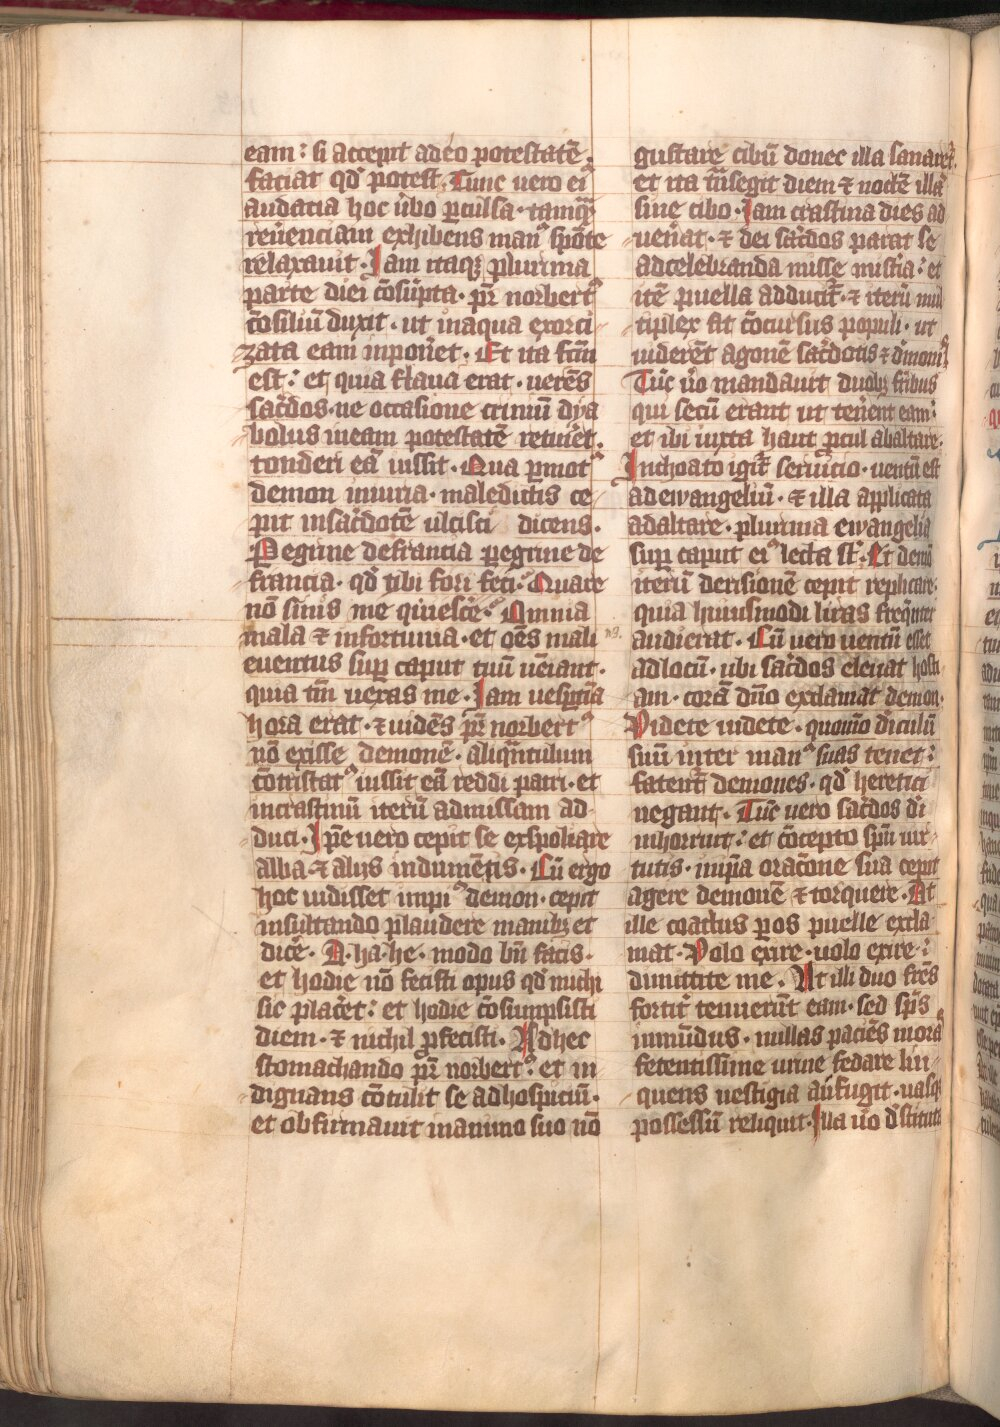 eam: si accepit adeo potestatē.
faciat qd' potest. Tunc uero ei
audatia hoc ūbo ꝑculsa. tamqȝ
reuenciam exhibens manꝰ spōte
relaxauit. Iam itaqȝ plurima
parte diei ↄ̄sūpta. pr̄ norbertꝰ
cōsiliū duxit. ut inaqua exorci
zata eam inponēet. Et ita fcm̄
est: et quia flaua erat. uerēs
sac̄dos. ne occasione criniū dya
bolus in eam potestatē retinēt.
tonderi eā iussit. Qua ꝑmotꝰ
demon iniuria. maledictis ce
pit insac̄dotē ulcisci dicens.
Peregrine defrancia ꝑegrine de
francia. qd' tibi fori feci? Quare
nō sinis me quiesc̄e? Omnia
mala ⁊ infortunia. et oēs mali
euentus suꝑ caput tuū uēiant.
quia tm̄ uexas me. Iam uesꝑtīa
hora erat. ⁊ uidēs pr̄ norbertꝰ
nō exisse demonē. aliqntulum
cōtristatꝰ iussit eā reddi patri. et
incrastinū iterū admissam ad
duci. Ipse uero cepit se exspoliare
alba ⁊ alijs indumētis. Cū ergo
hoc uidisset impiꝰ demon. cepit
insultando plaudere manibȝ et
dicē. A. ha. he. modo bn̄ facis.
et hodie nō fecisti opus qd' michi
sic placēt: et hodie cōsumpsisti
diem. ⁊ nichil ꝓfecisti. Adhec
stomachando pr̄ norbertꝰ. et in
dignans cōtulit se adhospicium.
et obfirmauit inanimo suo nō
gustare cibū donec illa sanaret'.
et ita trāsegit diem ⁊ noctē illā
sine cibo. Iam crastina dies ad
uen̄at. ⁊ dei sac̄dos parat se
adcelebranda misse mistīa: et
itē puella adducit'. ⁊ iterū mul
tiplex fit cōcursus populi. ut
uiderēt agonē sac̄dotis ⁊ dēmonis.
Tūc ūo mandauit duobȝ fr̄ibus
qui secū erant ut ten̄ent eam:
et ibi iuxta haut ꝓcul abaltare.
Inchoato igit' seruicio. uentū est
adewangeliū. ⁊ illa applicata
adaltare. plurima ewangelia
suꝑ caput eiꝰ lecta st̄. Et demō
iterū derisionē cepit replicare.
quia huiusmodi lr̄as freqnter
audierat. Cū uero uentū esset
adlocū. ubi sac̄dos eleuat hosti
am. corā dn̄o exclamat demon.
Videte uidete. quomō dīculū
suū inter manꝰ suas tenet:
fatent' demones. qd' heretici
negant. Tūc uero sac̄dos di
inhorruit: et cōcepto spū uir
tutis. inipā oracōne sua cepit
agere demonē ⁊ torquere. At
ille coactus ꝑ os puelle excla
mat. Volo exire. uolo exire:
dimittite me. At illi duo fr̄es
fortit' tenuerūt eam. sed sps̄
inmūdus. nullas paciēs moras
fetentissime urine fedare lin
quens uestigia aufugit. uasqȝ
possessū reliquit. Illa ūo d'stituta